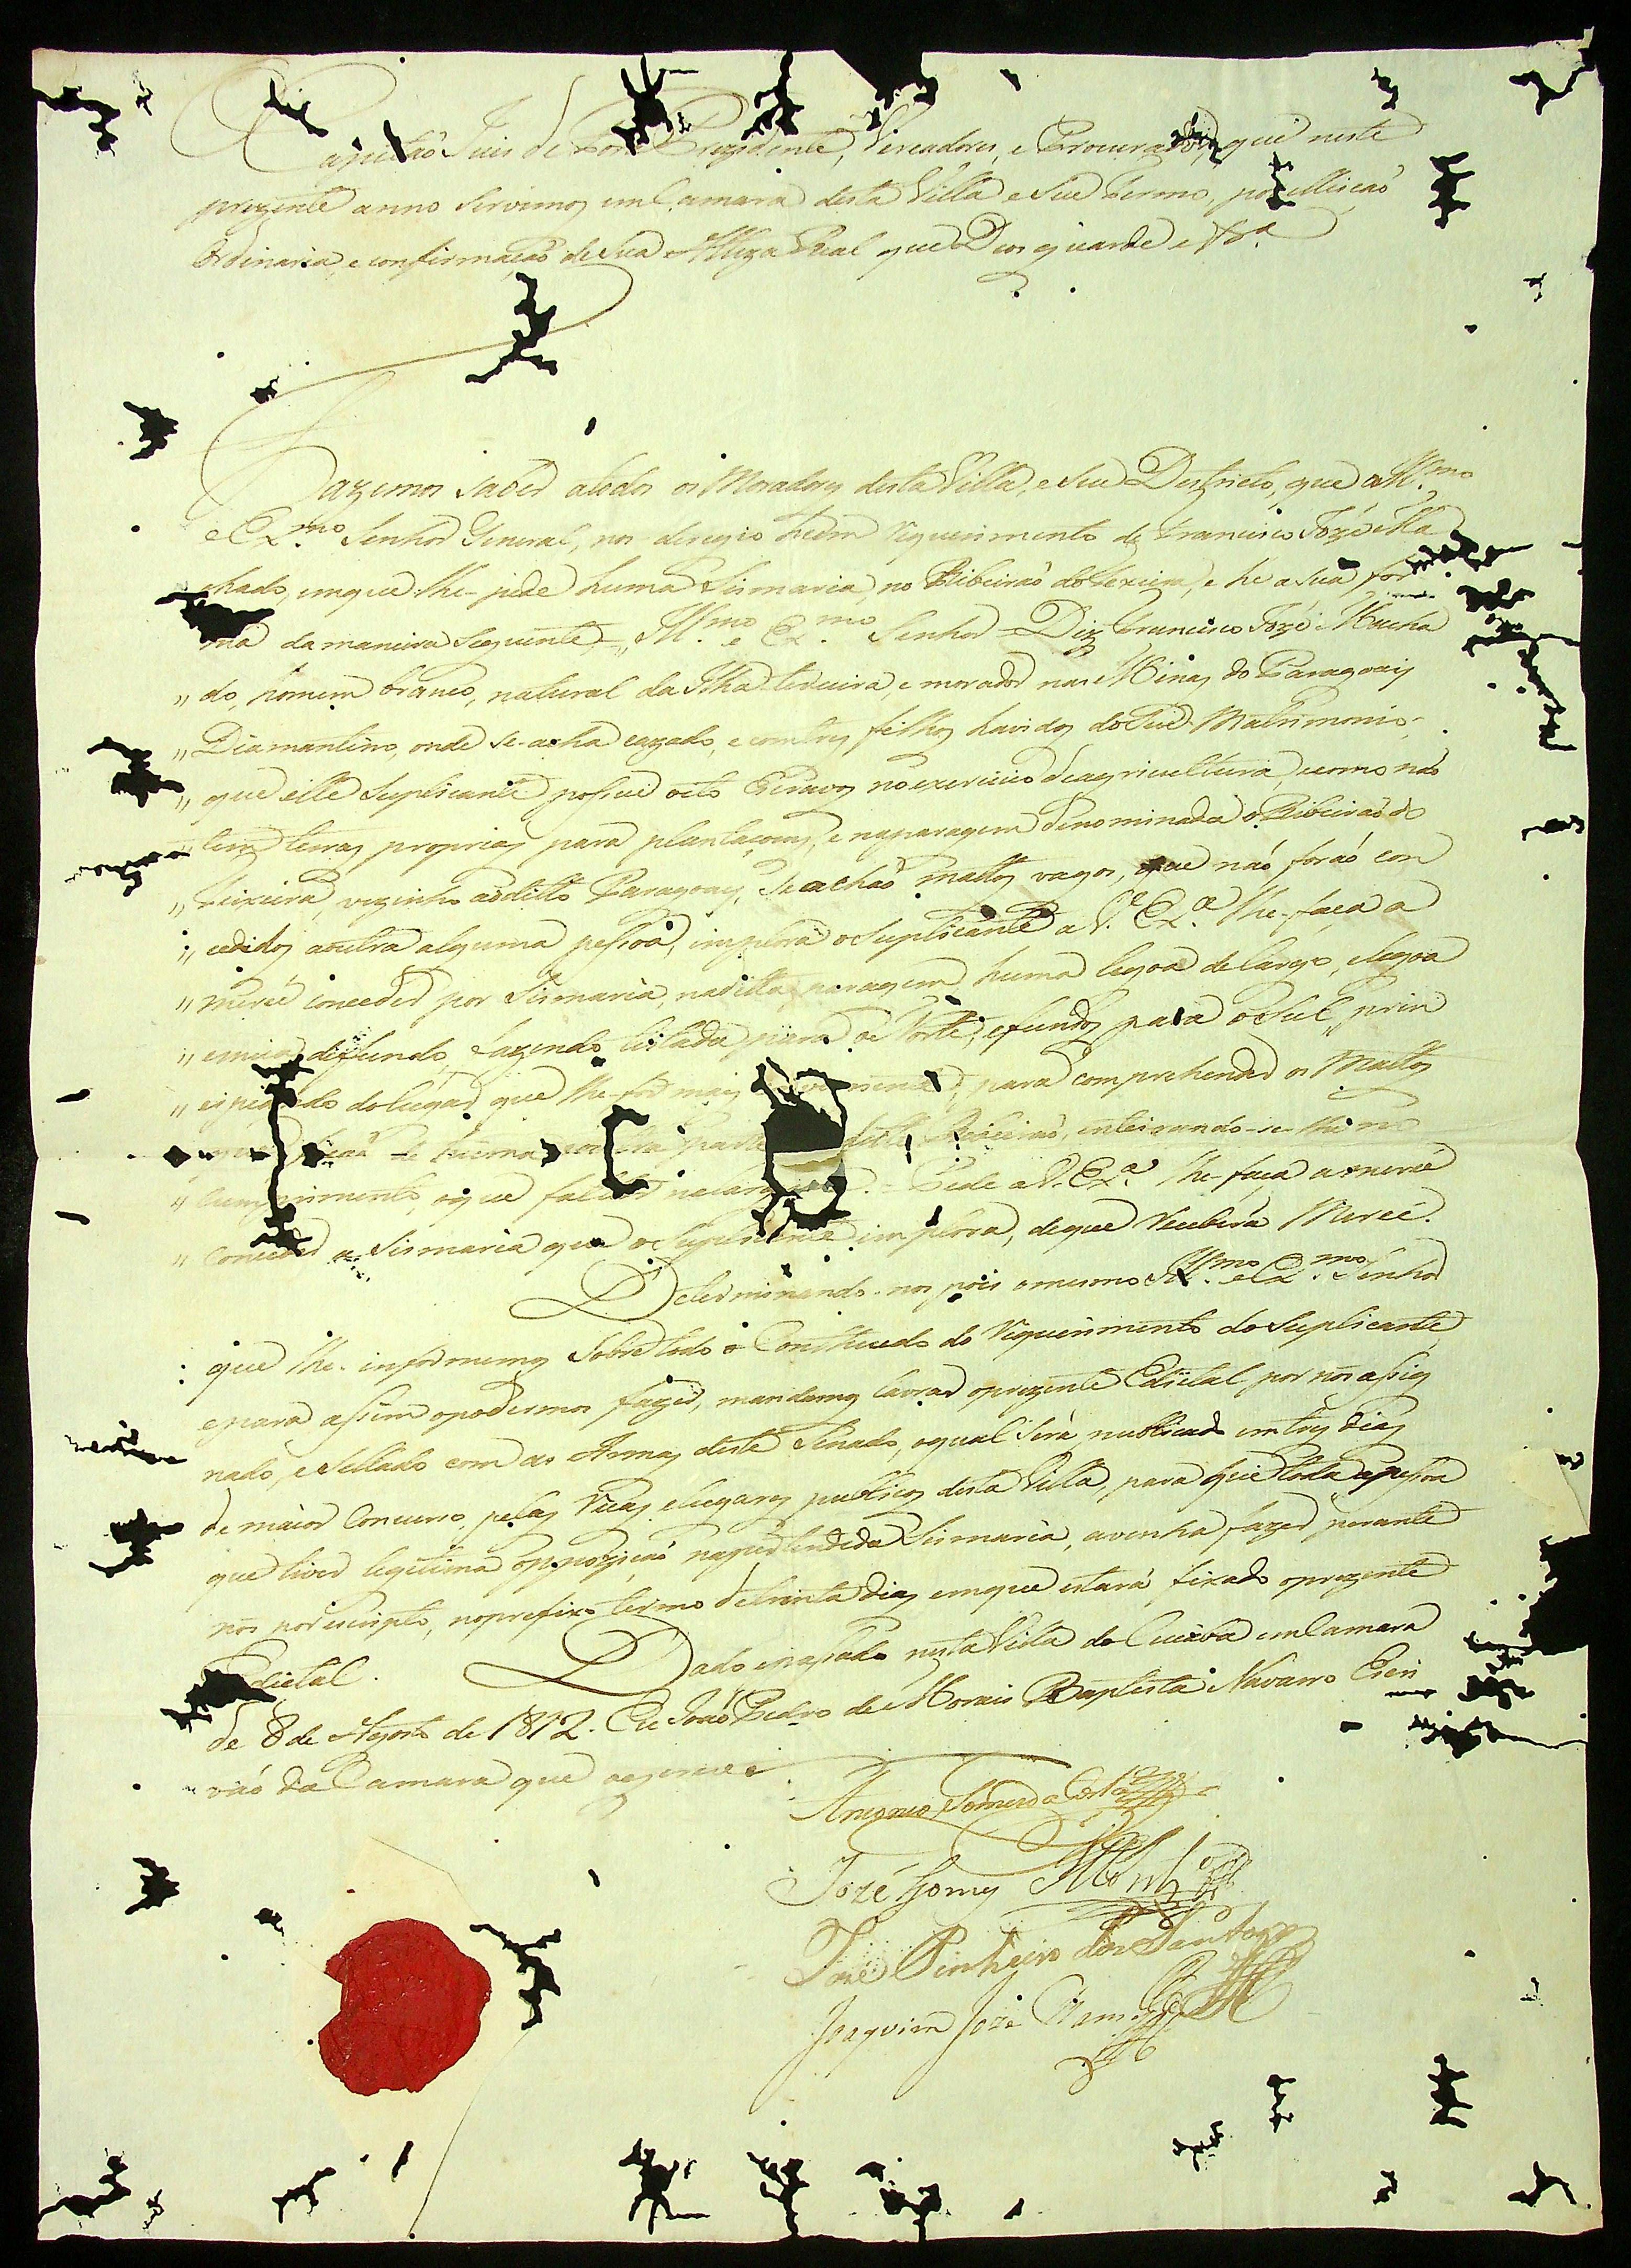 Capitão Juis de Fora Prezidente, Vereadores, e Procurador, que neste
prezente anno servimos em Camara desta Villa e Seu Termo, por elleiçaõ
Ordinaria, e confirmaçaõ de Sua Alteza Real que Deos guarde e Vª
Fazemos saber atodos os Moradores desta Villa, e Seu Destricto, que o Ill.mo
e Ex.mo Senhor General, nos deregio hum requerimento de Francisco Jozé Ma
chado, emque lhe-pede huma Sismaria, no Ribeiraõ do Teixeira, e he a Sua for
ma da maneira Seguinte = Ill.mo e Ex.mo Senhor = Diz Francisco Jozé Macha
" do, homem branco, natural da Ilha terceira, e morador nas Minas do Paragoay
" Diamantino, onde se-acha cazado, e com tres filhos havidos do Seu Matrimonio,
" que elle Suplicante possue oito Escravos no exercicio de agricultura, ecomo não
" tem terras proprias para plantaçoens, e naparagem denominada o Ribeiraõ do
" Teixeira, vezinho aodito Paragoay, Se achaõ mattos vagos, que naõ foraõ con
" cedidos aoutra alguma pessoa, implora oSuplicante a V. Ex.ª lhe-faça a
" mercê conceder por Sismaria, nadita paragem huma legoa delargo, elegoa
" emeia defundo, fazendo testada para o Norte, efundos para oSul, prin
" cipiando dolugar que lhe-for mais conveniente, para comprehender os Mattos
de huma eoutra parte deste Ribeiraõ, inteirando-se-lhe no
" Cumprimento, oque faltar nalargura. = Pede a V. Ex.ª lhe-faça amercê
" Conceder a Sismaria que oSuplicante implora, deque receberá Mercê.
Determinando-nos pois omesmo Ill.mo e Ex.mo Senhor
que lhe-informemos Sobre todo o Contheudo do requerimento doSuplicante,
epara assim opodermos fazer, mandamos lavrar oprezente Edictal por nós assig
nado, e Sellado com as Armas deste Senado, oqual Será publicado em tres dias
de maior Concurso, pelas Ruas elugares publicos desta Villa, para que toda apessoa
que tiver legitima oppoziçaõ napertendida Sismaria, avenha fazer perante
nós por escripto, noprefixo termo detrinta dias emque estará fixado oprezente
Edictal. Dado epassado nesta Villa do Cuiabá emCamara
de 8 de Agosto de 1812. Eu Joaõ Pedro de Morais Baptista Navarro Escri
vaõ da Camara que o escrevi
Antonio Gomes da Costa
Jozé Gomes Mont.ro
Jozé Pinheiro dos Santos
Joaquim Jozé Ramos